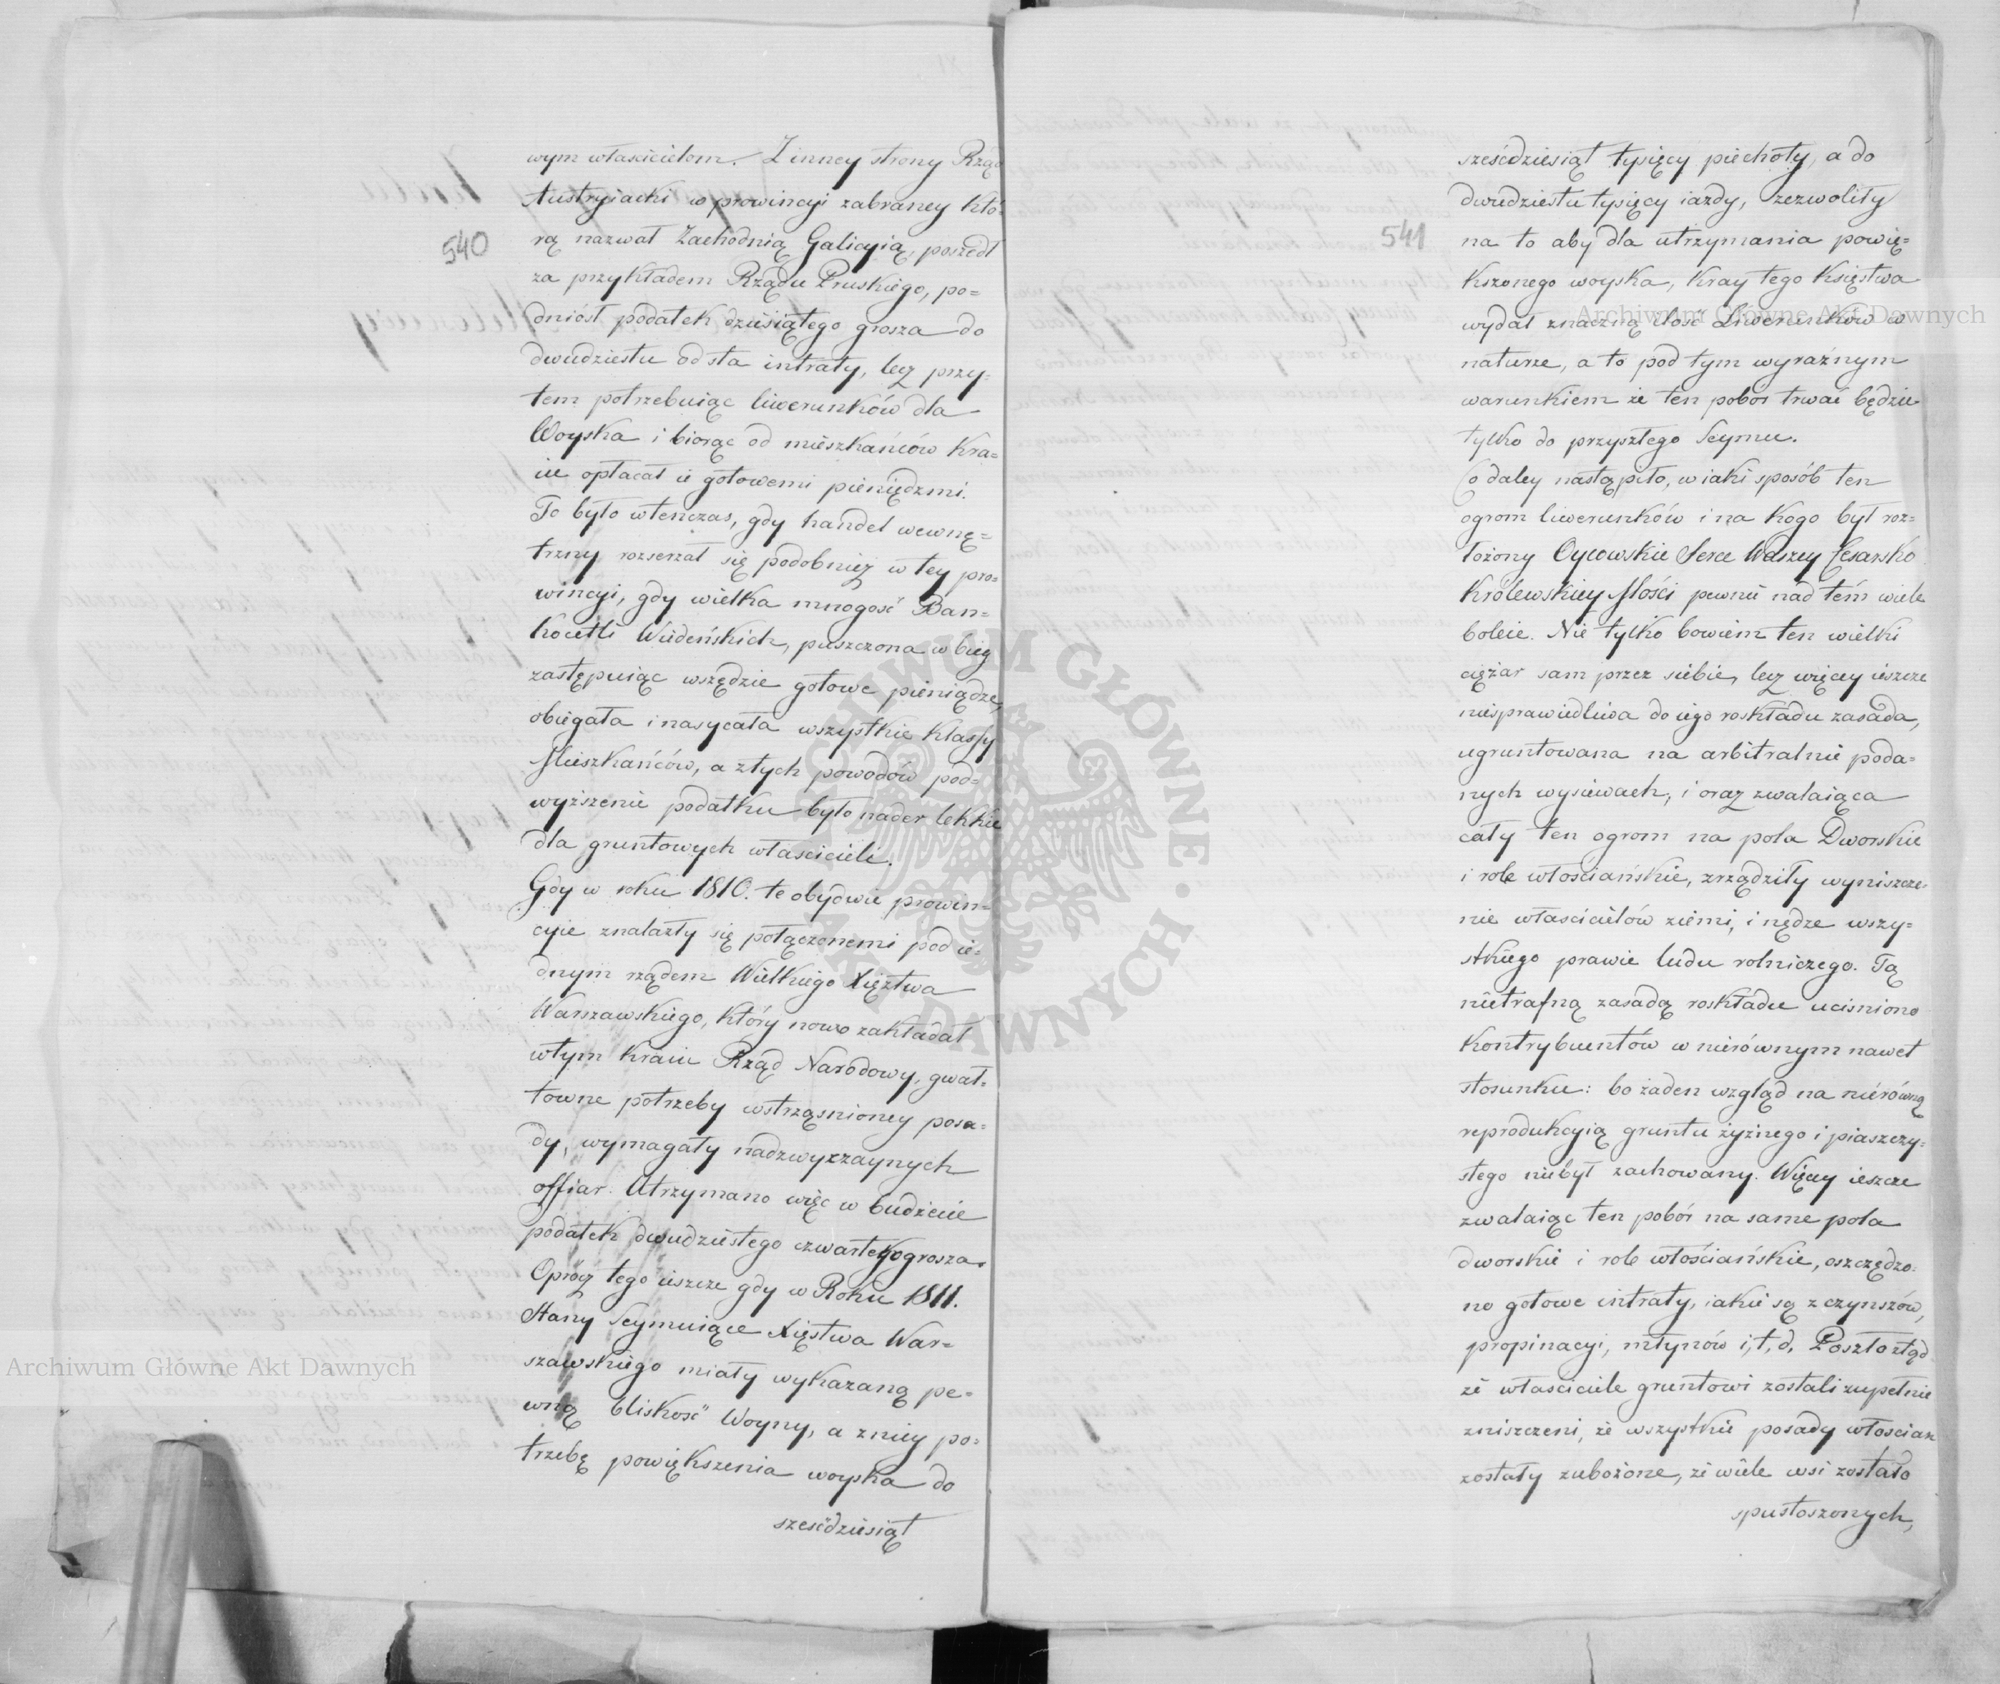 540
wym właścicielom. Z inney strony Rząd
Austryiacki w prowincyi zabraney któ=
rą nazwał Zachodnią Galicyią, poszedł
za przykładem Rządu Pruskiego, po=
dniósł podatek dziesiątego grosza do
dwudziestu od sta intraty, lecz przy=
tem potrzebuiąc liwerunków dla
Woyska i biorąc od mieszkańców Kra=
iu opłacał ie gotowemi pieniędzmi.
To było wtenczas, gdy handel wewnę=
trzny rozserzał się podobnież w tey pro=
wincyi, gdy wielka mnogość Ban=
kocetli Wiedeńskich, puszczona w bieg
zastępuiąc wszędzie gotowe pieniądze,
obiegała i nasycała wszystkie klassy
Mieszkańców, a z tych powodów pod=
wyższenie podatku było nader lekkie
dla gruntowych właścicieli.
Gdy w roku 1810. te obydwie prowin=
cyie znalazły się połączonemi pod ie=
dnym rządem Wielkiego Xięztwa
Warszawskiego, który nowo zakładał
w tym kraiu Rząd Narodowy, gwał=
towne potrzeby wstrząsnioney posa=
dy, wymagały nadzwyczaynych
offiar. Utrzymano więc w budżecie
podatek dwudziestego czwartego grosza.
Oprócz tego ieszcze gdy w Roku 1811.
Stany Seymuiące Xięstwa War=
szawskiego miały wykazaną pe=
wną bliskość Woyny, a z niey po=
trzebę powiększenia woyska do
sześćdziesiąt
541
sześćdziesiąt tysięcy piechoty, a do
dwudziestu tysięcy iazdy, zezwoliły
na to aby dla utrzymania powię=
kszonego woyska, Kray tego Księstwa
wydał znaczną ilość Liwerunków w
naturze, a to pod tym wyraźnym
warunkiem że ten pobór trwać będzie
tylko do przyszłego Seymu.
Co daley nastąpiło, w iaki sposób ten
ogrom liwerunków i na kogo był roz=
łożony Oycowskie Serce Waszey Cesarsko
Królewskiey Mości pewnie nad tém wiele
boleie. Nie tylko bowiem ten wielki
ciężar sam przez siebie, lecz więcey ieszcze
niesprawiedliwa do iego roskładu zasada,
ugruntowana na arbitralnie poda=
nych wysiewach, i oraz zwalaiąca
cały ten ogrom na pola Dworskie
i role włościańskie, zrządziły wyniszcze=
nie właścicielów ziemi, i nędze wszy=
stkiego prawie ludu rolniczego. Tą
nietrafną zasadą roskładu uciśniono
Kontrybuentów w nierównym nawet
stosunku: bo żaden wzgląd na nierówną
reprodukcyią gruntu żyżnego i piaszczy=
stego niebył zachowany. Więcy ieszcze
zwalaiąc ten pobór na same pola
dworskie i role włościańskie, oszczędzo=
no gotowe intraty, iakie są z czynszów,
propinacyi, młynów i, t, d. Poszło ztąd
że właściciele gruntowi zostali zupełnie
zniszczeni, że wszystkie posady włościan
zostały zubożone, że wiele wsi zostało
spustoszonych,
Archiwum Główne Akt Dawnych
Archiwum Główne Akt Dawnych
ARCHIWUM GŁÓWNE • AKT DAWNYCH •